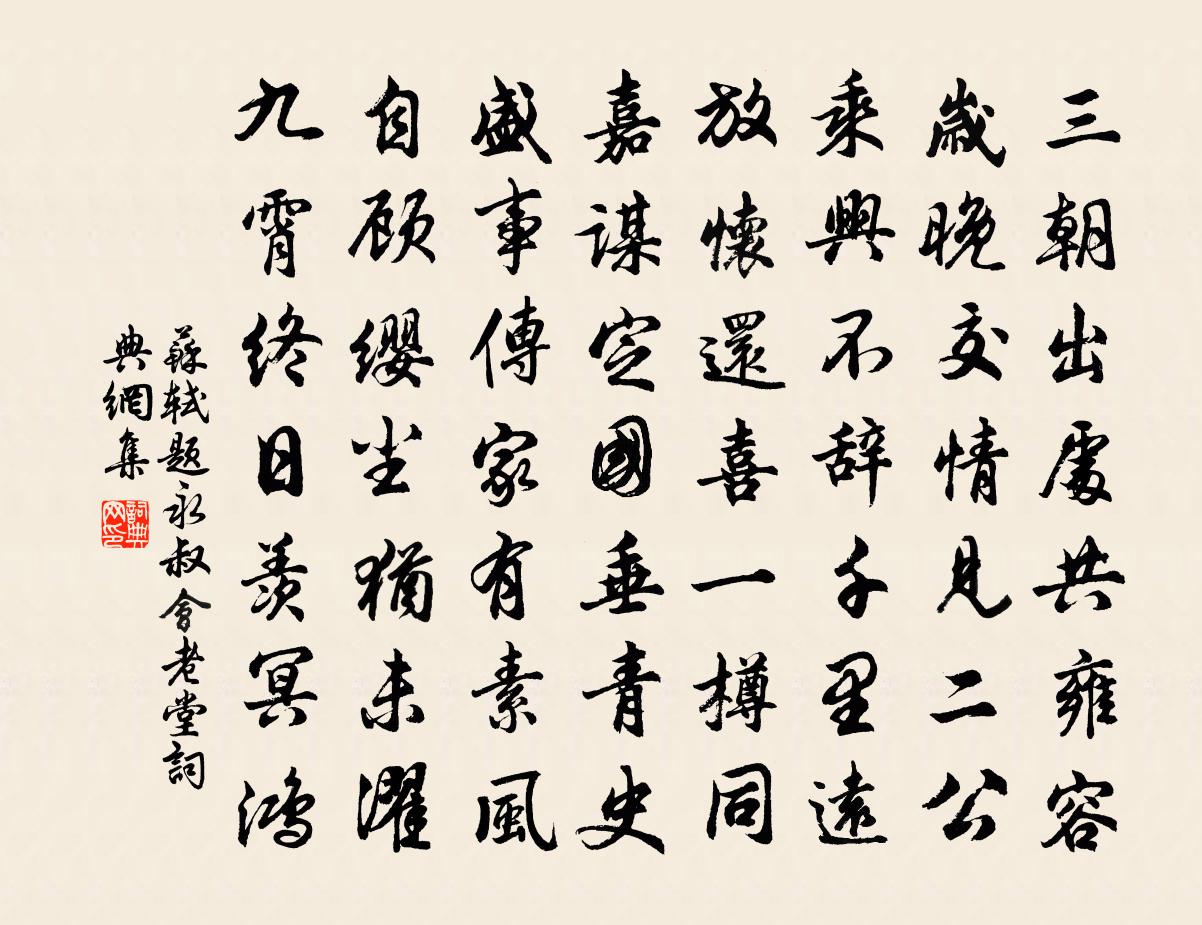 三朝出處共雍容
歲晚交情見二公
乘興不辞千里遠
放懷還喜一樽同
嘉謀定國垂青史
盛事傳家有素風
自顾纓尘猶未濯
九霄终日羨冥鴻
蘇轼題永叔會老堂詞
典網集
詞典网印